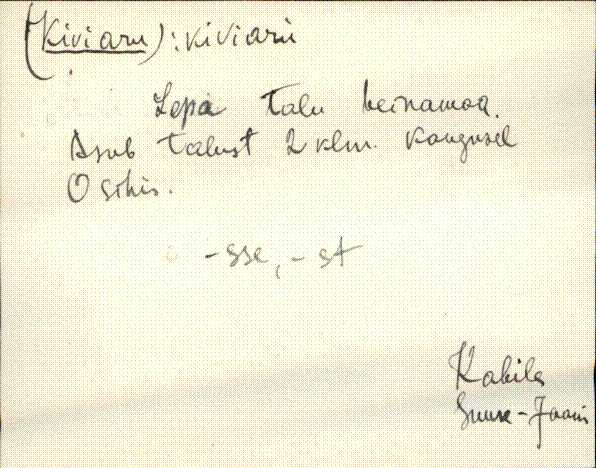 (Kiviaru): kiviarü
Lepa talu heinamaa.
Asub talust 2 klm. kaugusel
O sihis.
-sse, -st
Kabila
Suure-Jaani